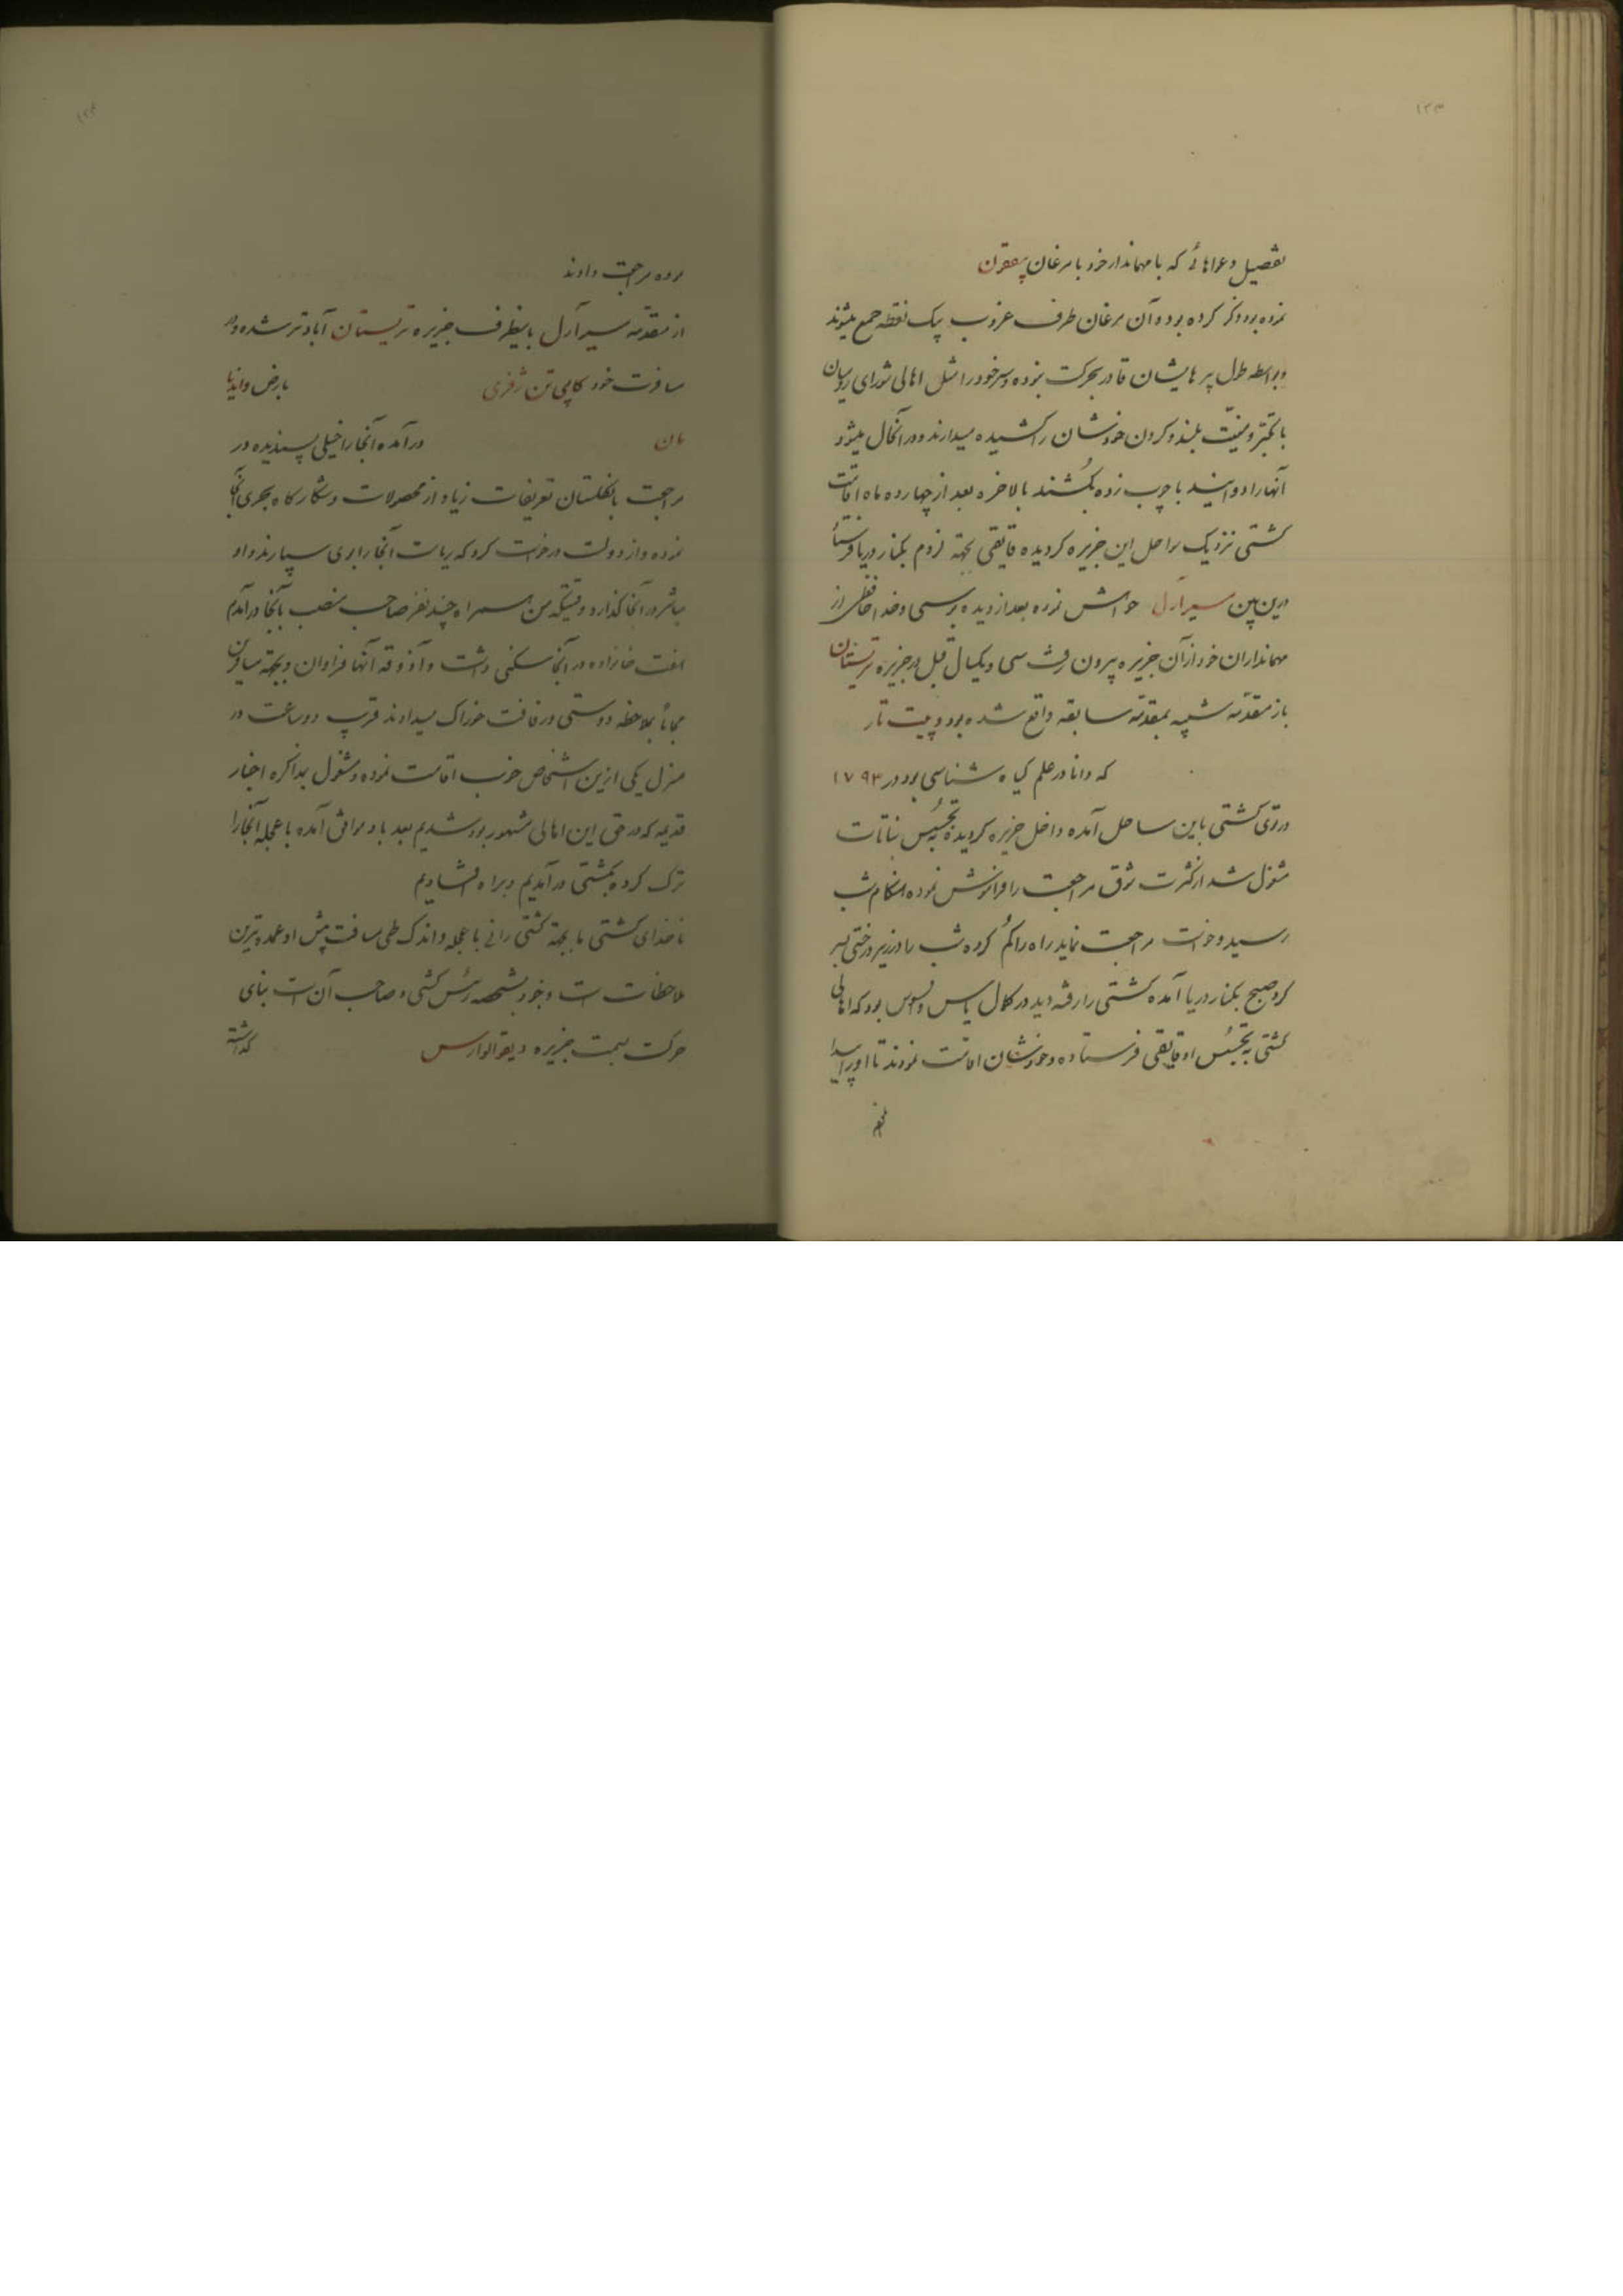 ۱۲۳
تفصیل دعواهائی که با مهماندار خود با مرغان پنقون
نموده بود ذکر کرده بود و آن مرغان طرف غروب یک نقطه جمع میشوند
و بواسطه طول پرهایشان قادر بحرکت نبوده و سر خود را مثل اهالی شورای
با تکبر و منیت بلند و گردن خودشان را کشیده میدارند و در آنحال میشود
آنها را دوانید با چوب زده بکشند بالاخره بعد از چهارده ماه اقامت
کشتی نزدیک سواحل این جزیره گردیده قایقی بجهة لزوم بکنار دریا
درین بین سیر آرل خواهش نموده بعد از دیده بوسی و خداحافظی از
مهمانداران خود از آن جزیره بیرون رفت سی و یکسال قبل در جزیره تریستان
باز مقدمه شبیه بمقدمه سابقه واقع شده بود و پیت تار
که دانا در علم گیاه شناسی بود در ۱۷۹۳
در توی کشتی باین ساحل آمده داخل جزیره گردیده به تجسس نباتات
مشغول شد از کثرت شوق مراجعت را فراموش نموده هنگام شب
رسید و خواست مراجعت نماید راه را گم کرده شب را در زیر درختی بسر
کرد صبح بکنار دریا آمده کشتی را رفته دید در کمال یأس و افسوس بود که اهالی
کشتی به تجسس او قایقی فرستاده و خودشان اقامت نمودند تا او را پیدا

مراجعت دادند
از مقدمه سیر آرل باینطرف جزیره تریستان آبادتر شده و در
مسافرت خود کاپی تن ژفری بارض واندیا
مان درآمده آنجا را خیلی پسندیده در
مراجعت بانگلستان تعریفات زیاد از محصولات و شکارگاه بحری آنجا
نموده و از دولت درخواست کرد که ریاست آنجا را باو بسپارند و او
مباشر در آنجا گذارد وقتیکه من همراه چند نفر صاحب منصب بآنجا درآمدم
هفت خانواده در آنجا سکنی داشت و آذوقه آنها فراوان و بجهة مسافرین
مجاناً بملاحظه دوستی و رفاقت خوراک میدادند قریب دو ساعت در
منزل یکی ازین اشخاص خوب اقامت نموده و مشغول مذاکره اخبار
قدیمه که در حق این اهالی مشهور بود شدیم بعد باد موافق آمده با عجله آنجا را
ترک کرده بکشتی درآمدیم و براه افتادیم
ناخدای کشتی ما بجهة کشتی رانی با عجله و اندک طی مسافت پیش او عمده ترین
ملاحظات است و خود بشخصه رئیس کشتی و صاحب آن است بنای
حرکت بسمت جزیره دیقوالوارس گذاشته